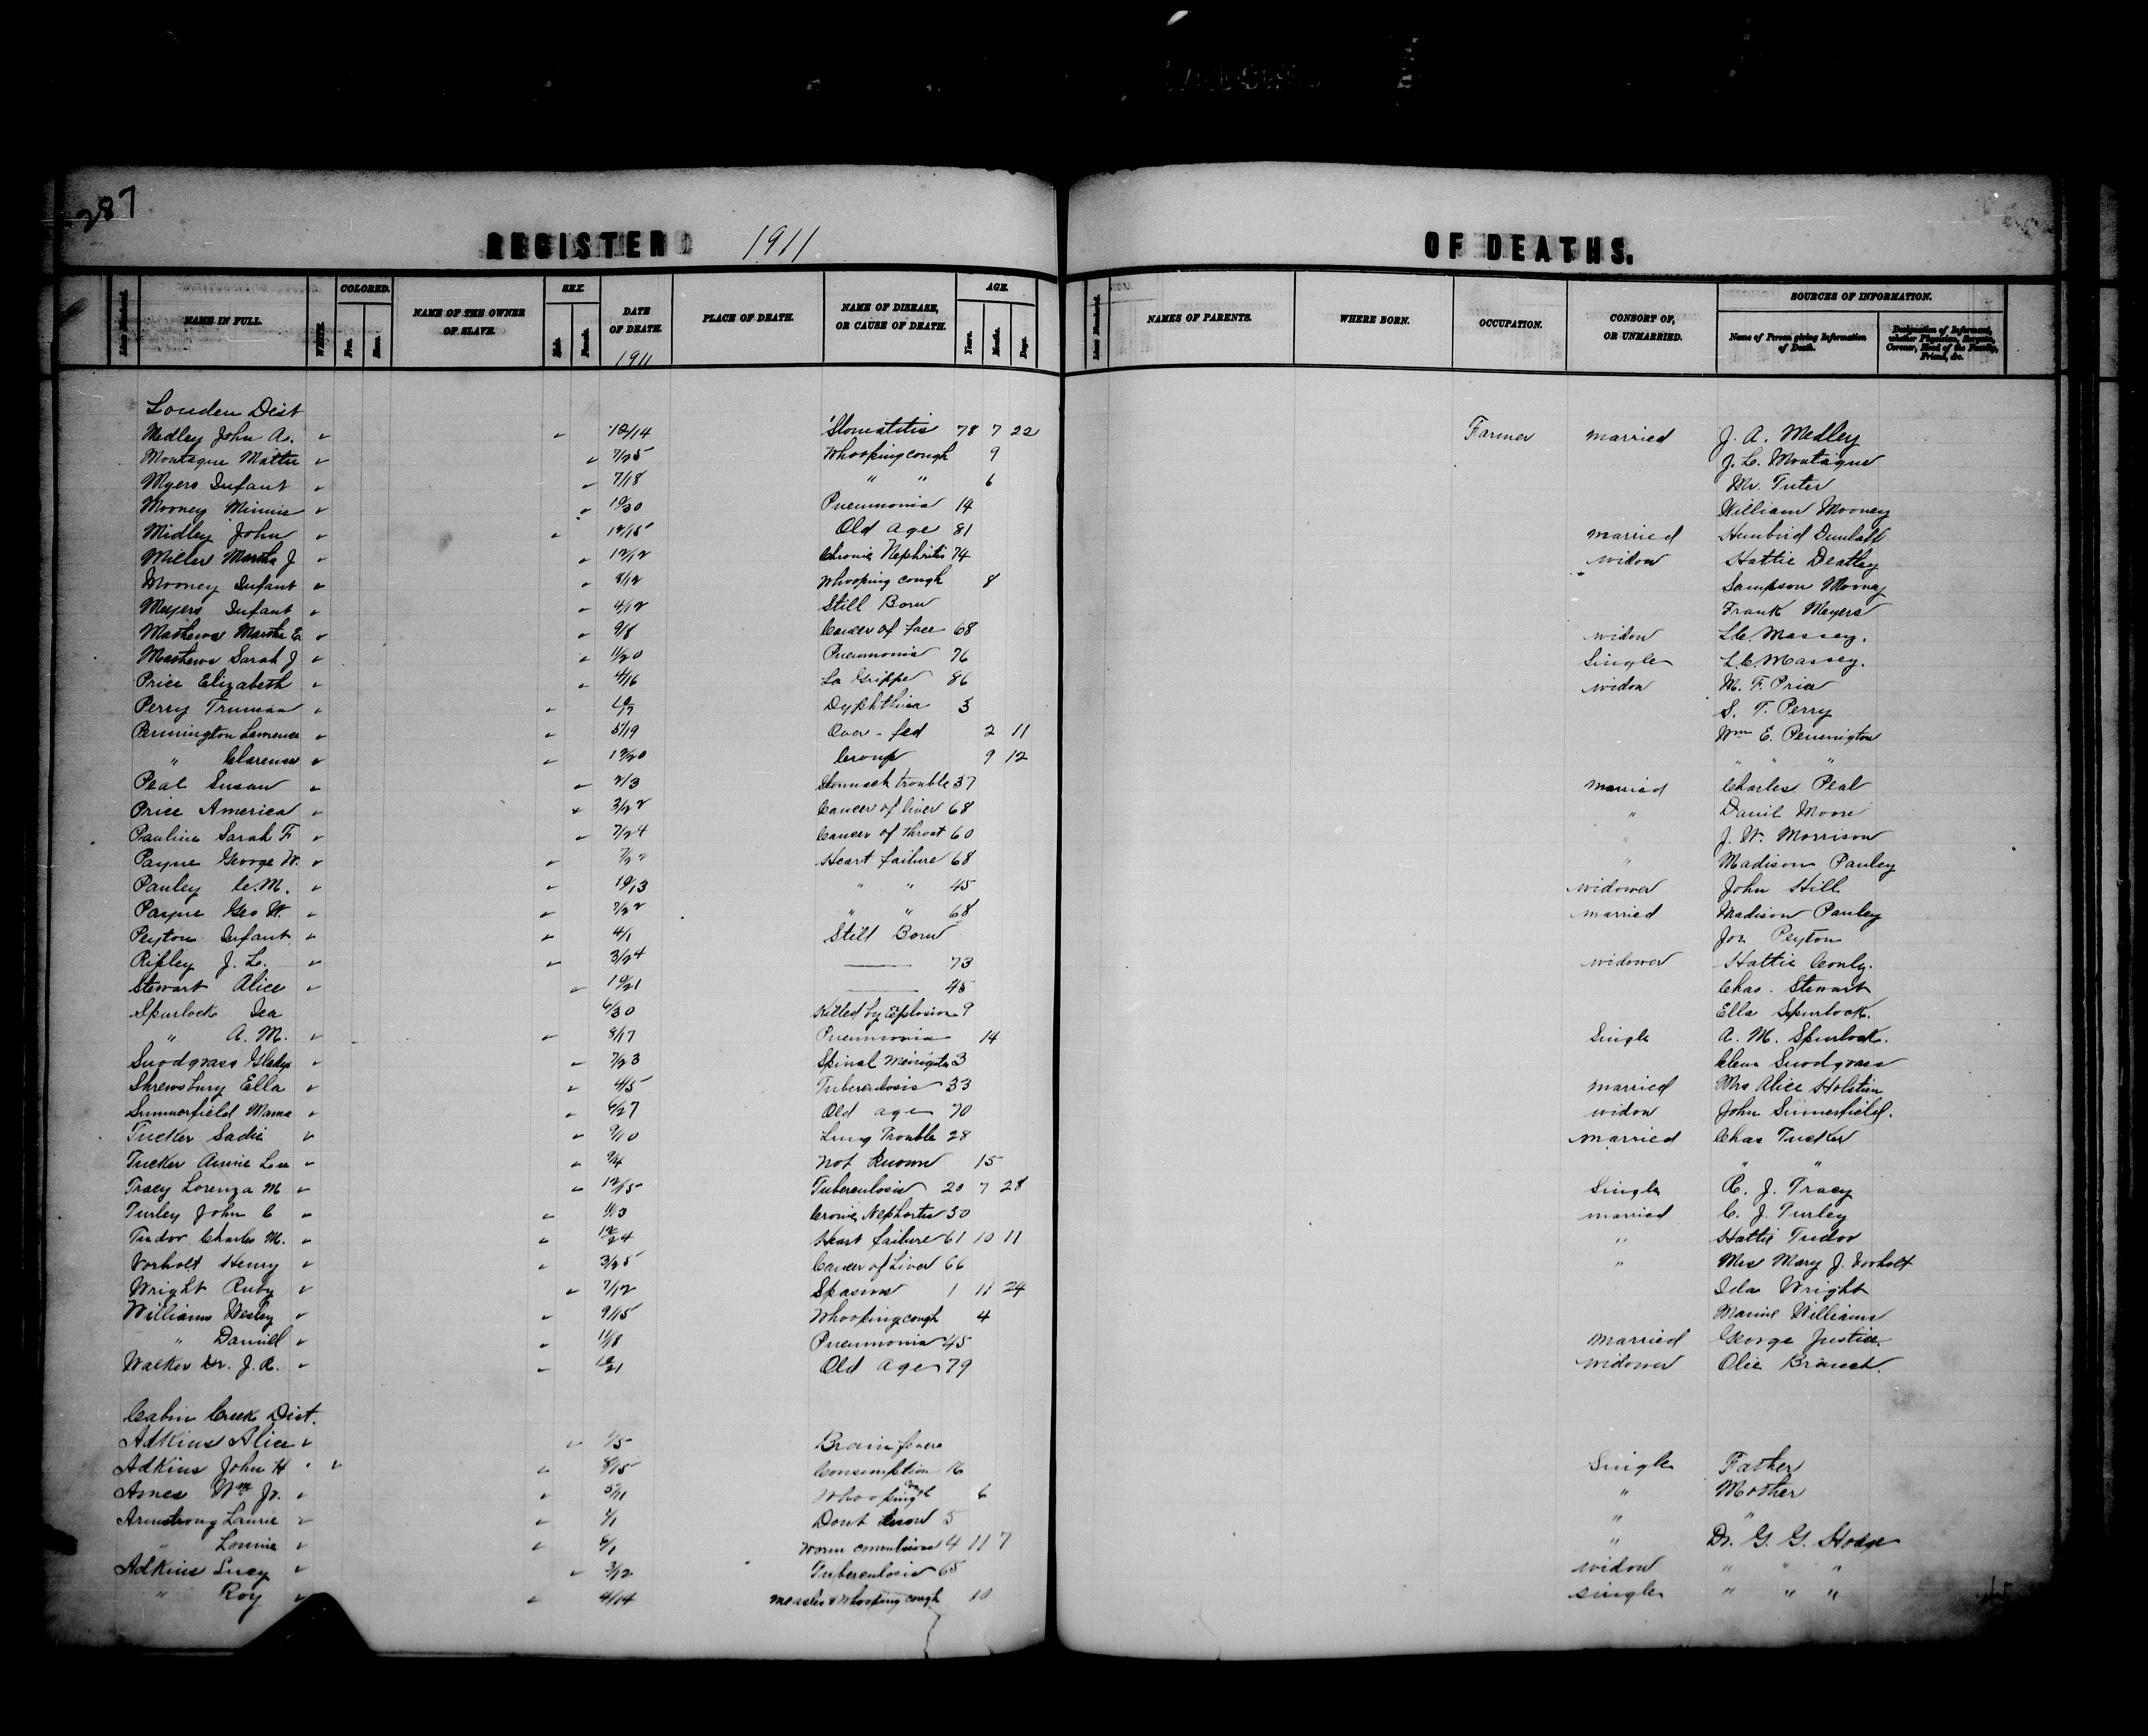 287
REGISTER 1911 OF DEATHS.
NAME IN FULL. WHITE. COLORED. Free. Slave. NAME OF THE OWNER OF SLAVE. SEX. Male. Female. DATE OF DEATH. 1911 PLACE OF DEATH. NAME OF DISEASE, OR CAUSE OF DEATH. AGE. Years. Months. Days. NAMES OF PARENTS. WHERE BORN. OCCUPATION. CONSORT OF, OR UNMARRIED. SOURCES OF INFORMATION. Name of Person giving Information of Death. Designation of Informant, whether Physician, Surgeon, Coroner, Head of the Family, Friend, &c.
Louden Dist
Medley John A. ✓ ✓ 12/14 Stomatitis 78 7 22 Farmer married J. A. Medley
Montague Mattie ✓ ✓ 7/25 Whooping cough 9 J. L. Montague
Myers Infant ✓ ✓ 7/18 " " 6 Mr. Tuter
Mooney Minnie ✓ ✓ 10/30 Pneumonia 14 William Mooney
Midley John ✓ ✓ 12/15 Old age 81 married Dunlap
Miller Martha J ✓ ✓ 12/12 Chronic Nephritis 74 widow Hattie Deatley
Mooney Infant ✓ ✓ 8/12 Whooping cough 8 Sampson Mooney
Meyers Infant ✓ ✓ 4/12 Still Born Frank Meyers
Mathews Martha E ✓ ✓ 9/8 Cancer of face 68 widow L C Massey.
Mathews Sarah J ✓ ✓ 11/20 Pneumonia 76 Single L C Massey.
Price Elizabeth ✓ ✓ 4/16 La Grippe 86 widow M. F. Price
Perry Truman ✓ ✓ Dyphthiria 3 S. T. Perry
Pennington Lawrence ✓ ✓ 5/19 Over-fed 2 11 Wm E. Penenington
" Clarence ✓ ✓ 12/20 Croup 9 12 " " "
Peal Susan ✓ ✓ 2/3 Stomach trouble 37 married Charles Peal
Price America ✓ ✓ 3/22 Cancer of liver 68 " Danil Moore
Pauline Sarah F ✓ ✓ 7/24 Cancer of throat 60 " J. W. Morrison
Payne George W. ✓ ✓ 7/22 Heart failure 68 " Madison Pauley
Pauley C. M. ✓ ✓ 10/13 " " 45 widower John Hill
Payne Geo W. ✓ ✓ 7/22 " " 68 married Madison Pauley
Peyton Infant ✓ ✓ 4/1 Still Born Peyton
Ripley J. L. ✓ ✓ 3/24 —— 73 widower Hattie Conly.
Stewart Alice ✓ ✓ 10/21 —— 45 Chas. Stewart
Spurlock 6/30 Killed by Explosion 9 Ella Spurlock.
" A. M. ✓ ✓ 8/17 Pneumonia 14 Single A. M. Spurlock.
Snodgrass Gladys ✓ ✓ 7/23 Spinal 3 Snodgrass
Shrewsbury Ella ✓ ✓ 4/5 Tuberculosis 33 married Mrs Alice Holstien
Summerfield Mama ✓ ✓ 6/27 Old age 70 widow John Sumerfield.
Tucker Sadie ✓ ✓ 9/10 Lung Trouble 28 married Chas Tucker
Tucker Annie Lee ✓ ✓ 9/4 Not Known 15 " "
Tracy Lorenza M ✓ ✓ 12/15 Tuberculosis 20 7 28 Single R. J. Tracy
Turley John C ✓ ✓ Cronic Nephortis 50 married C. J. Turley
Tudor Charles M. ✓ ✓ 12/24 Heart failure 61 10 11 " Hattie Tudor
Vorholt Henry ✓ ✓ 3/25 Cancer of Liver 66 " Mrs Mary J. Vorholt
Wright Ruby ✓ ✓ 7/12 Spasms 1 11 24 Ida Wright
Williams Wesley ✓ ✓ 9/15 Whooping cough 4 Williams
" Daniel ✓ ✓ 11/8 Pneumonia 45 married George Justice.
Walker Dr. J. R. ✓ ✓ Old age 79 widower Olie Branch.
Cabin Creek Dist.
Adkins Alice ✓ ✓ 1/5 Brain fever
Adkins John H ✓ ✓ 8/15 Consumption 16 Single Father
Ames Wm Jr. ✓ ✓ 5/11 Whooping cough 6 " Mother
Armstrong Laurie ✓ ✓ Dont know 5 " "
" Lonnie ✓ ✓ 6/1 Worm convulsions 4 11 7 " Dr. G. G. Hodge
Adkins Lucy ✓ ✓ 3/12 Tuberculosis 65 widow " " "
" Roy ✓ ✓ 4/14 Measles & Whooping cough 10 single " " "